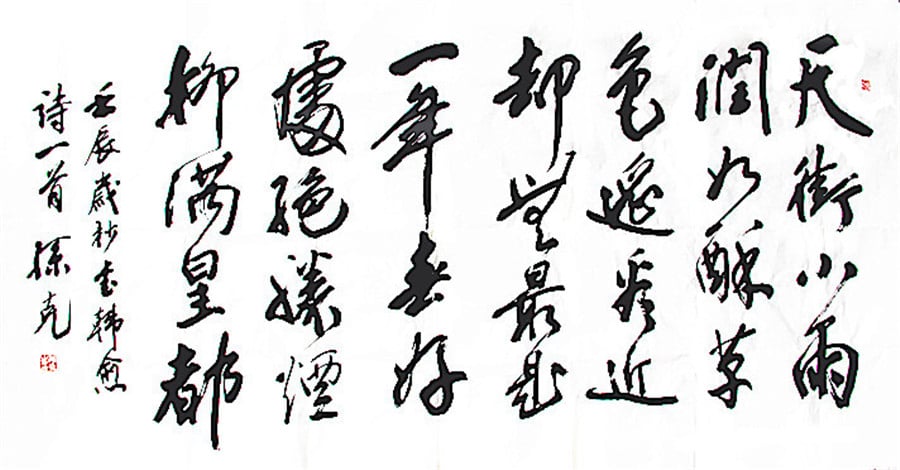 天街小雨
潤如酥草
色遙看近
却無最是
一年春好
處絕勝煙
柳滿皇都
壬辰歲杪書韓愈
詩一首 孫克